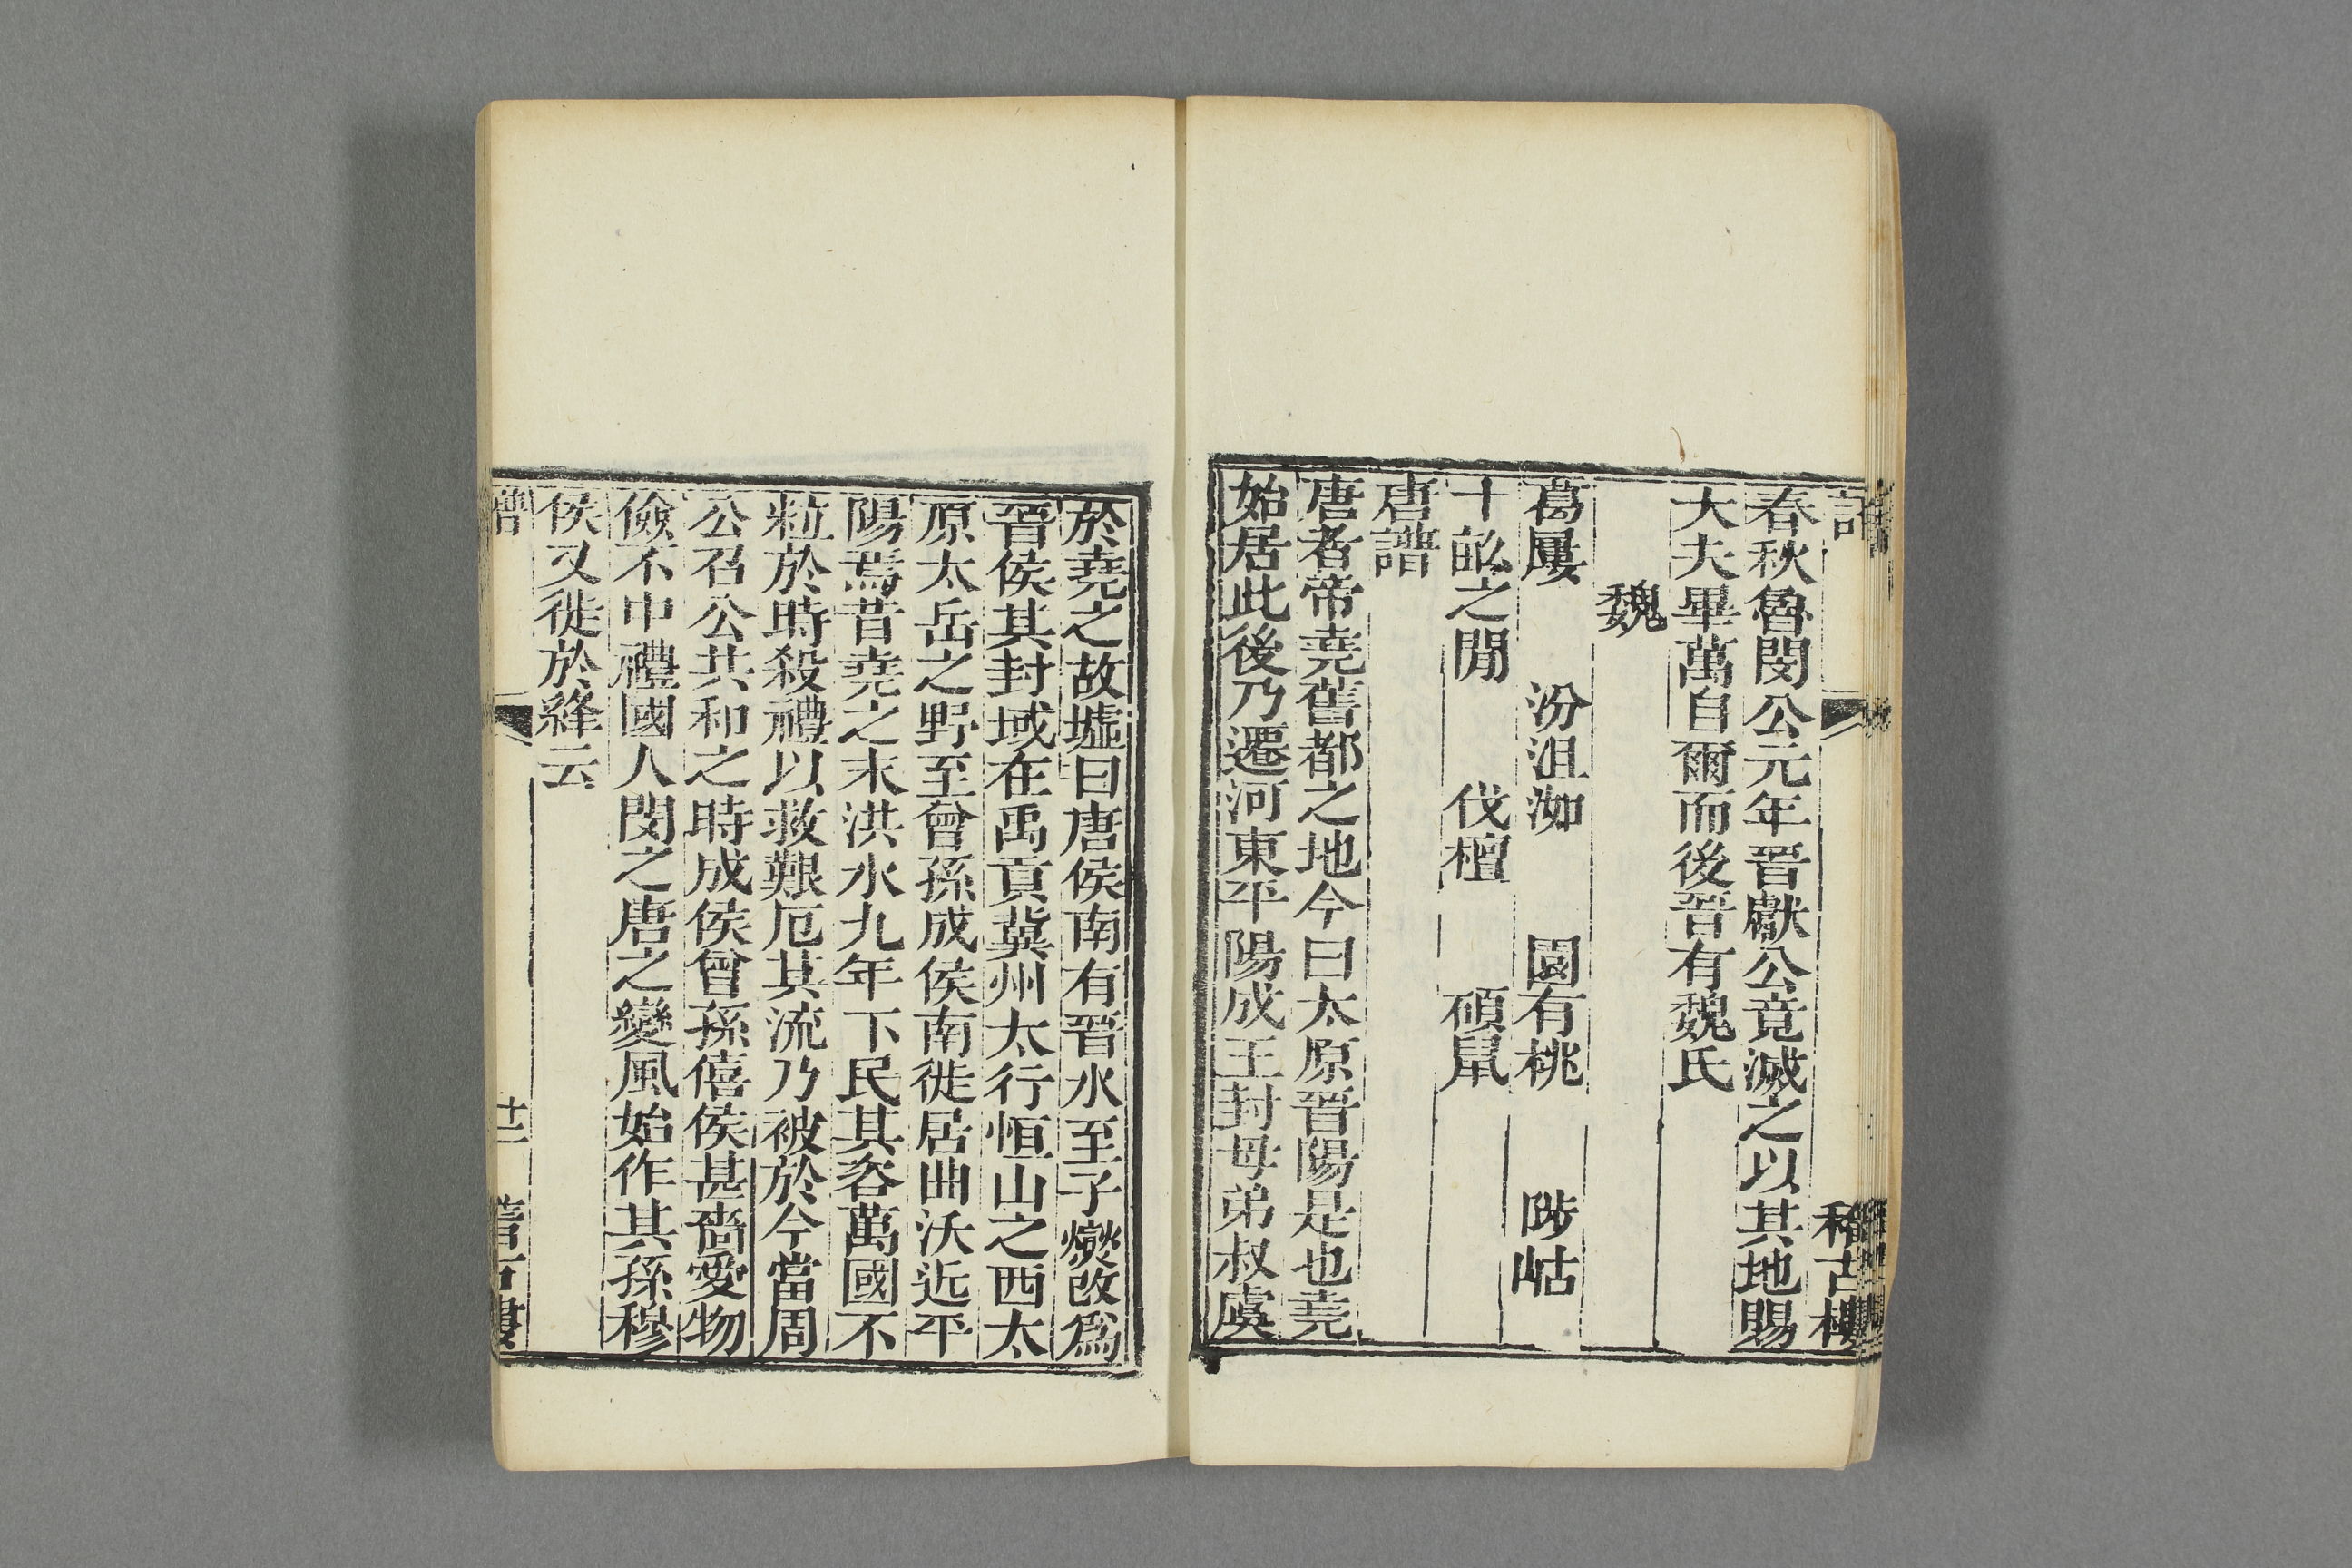 稽古樓
春秋魯閔公元年晉獻公竟滅之以其地賜
大夫畢萬自爾而後晉有魏氏
魏
葛屨 汾沮洳 園有桃 陟岵
十畝之閒 伐檀 碩鼠
唐譜
唐者帝堯舊都之地今曰太原晉陽是也堯
始居此後乃遷河東平陽成王封母弟叔虞
於堯之故墟曰唐侯南有晉水至子燮改爲
晉侯其封域在禹貢冀州太行恒山之西太
原太岳之野至曾孫成侯南徙居曲沃近平
陽焉昔堯之末洪水九年下民其咨萬國不
粒於時殺禮以救艱厄其流乃被於今當周
公召公共和之時成侯曾孫僖侯甚嗇愛物
儉不中禮國人閔之唐之變風始作其孫穆
侯又徙於絳云